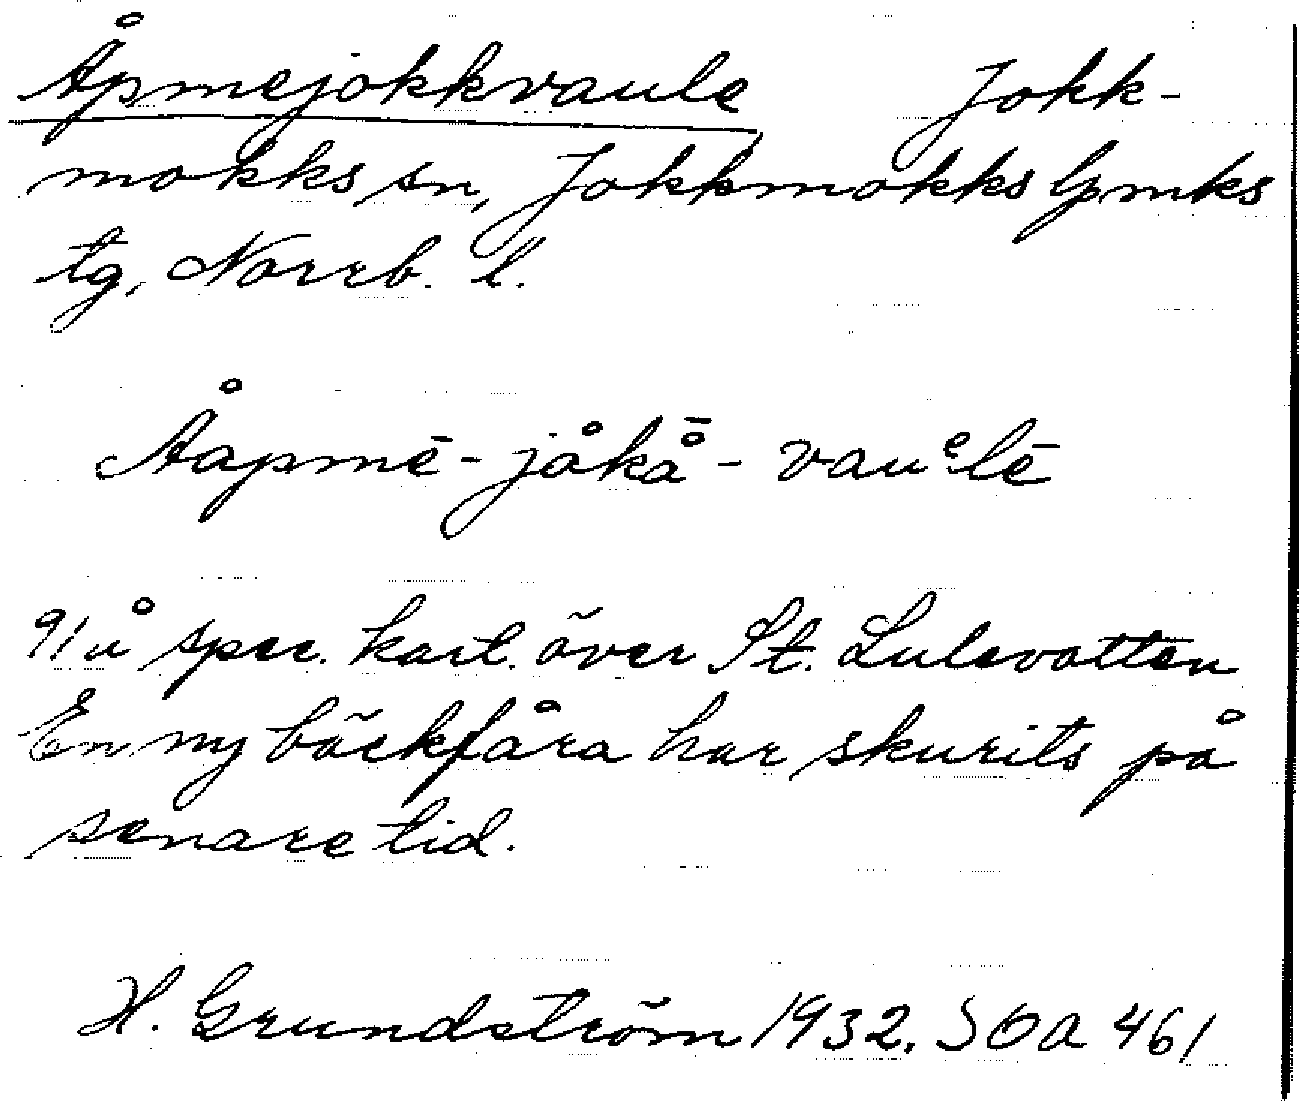 Åpmejokkvaule Jokk-
mokks sn, Jokkmokks lpmks
tg, Norrb. l.
Åapmē-jåkå̄-vauᵉlē
91 å spec. kart. över St. Lulevatten
En ny bäckfåra har skurits på
senare tid.
H. Grundström 1932. SOA 461